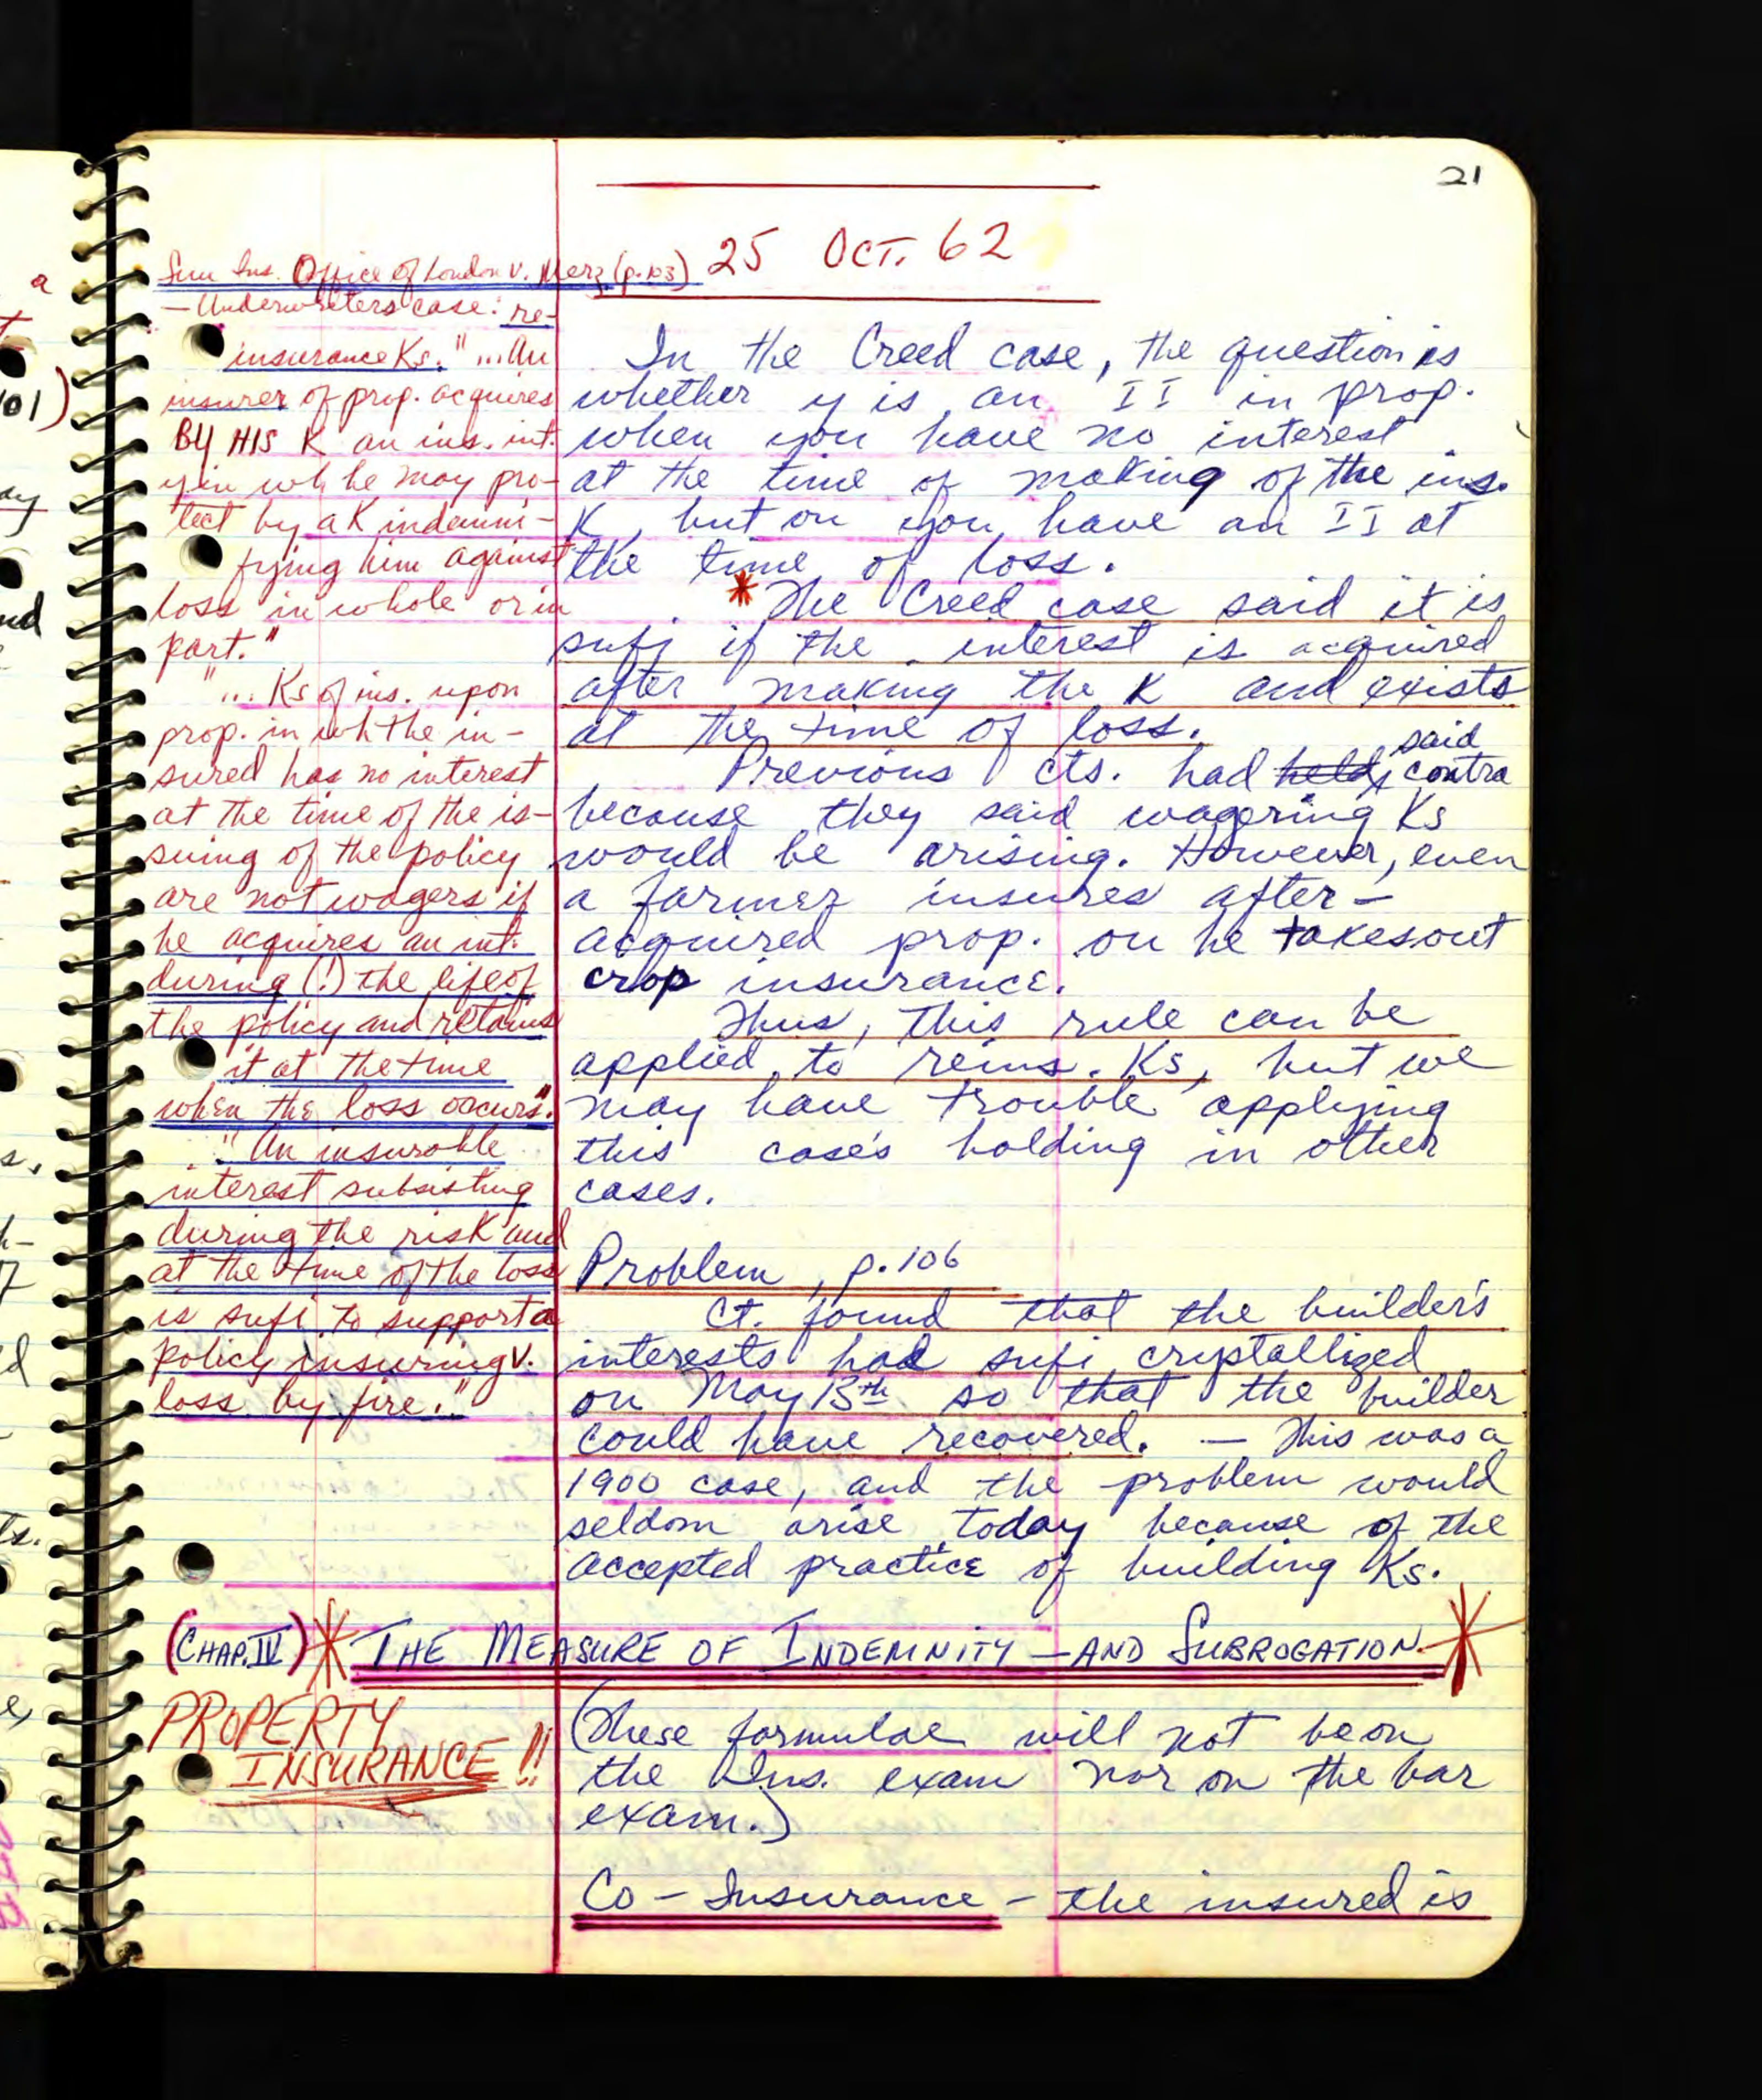 21
25 OCT. 62
Sun Ins. Office of London v. Merz (p. 103)
— Underwriters case: re-
insurance Ks. "... An
insurer of prop. acquires
BY HIS K an ins. int.
in wh he may pro-
tect by a K indemni-
fying him against
loss in whole or in
part."
"... Ks of ins. upon
prop. in wh the in-
sured has no interest
at the time of the is-
suing of the policy
are not wagers if
he acquires an int.
during (!) the life of
the policy and retains
it at the time
when the loss occurs."
"An insurable
interest subsisting
during the risk and
at the time of the loss
is sufi. to support a
policy insuring v.
loss by fire."
In the Creed case, the question is
whether y is an II in prop.
when you have no interest
at the time of making of the ins.
K, but on you have an II at
the time of loss.
* The Creed case said it is
sufi if the interest is acquired
after making the K and exists
at the time of loss.
Previous cts. had held said contra
because they said wagering Ks
would be arising. However, even
a farmer insures after-
acquired prop. on he takes out
crop insurance.
Thus, this rule can be
applied to reins. Ks, but we
may have trouble applying
this case's holding in other
cases.
Problem, p. 106
Ct. found that the builder's
interests had sufi crystallized
on May 13th so that the builder
could have recovered. — This was a
1900 case, and the problem would
seldom arise today because of the
accepted practice of building Ks.
(CHAP. IV) * THE MEASURE OF INDEMNITY — AND SUBROGATION *
PROPERTY
INSURANCE!!
(These formulae will not be on
the Ins. exam nor on the bar
exam.)
Co-Insurance - the insured is